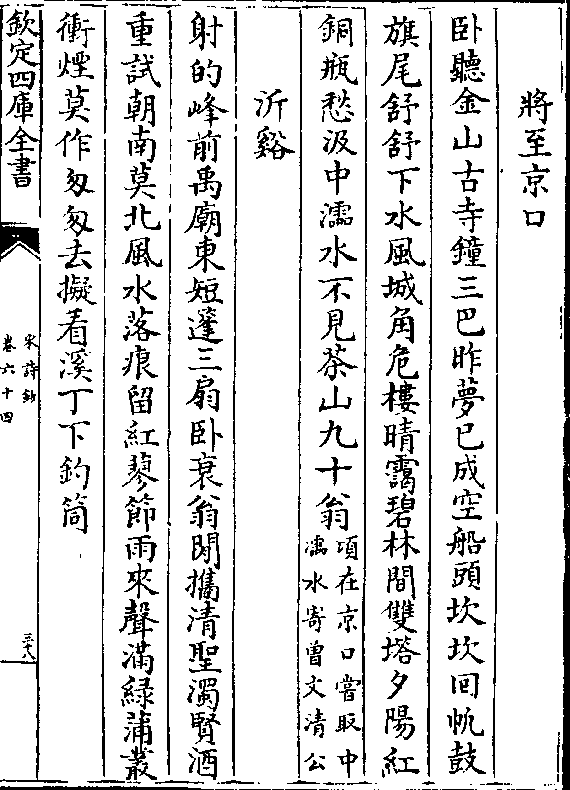 將至京口
卧聽金山古寺鐘三巴昨夢已成空船頭坎坎回帆鼓
旗尾舒舒下水風城角危樓晴靄碧林間雙塔夕陽紅
銅瓶愁汲中濡水不見茶山九十翁項在京口嘗取中
濡水寄曾文清公
泝谿
射的峰前禹廟東短蓬三扇卧衰翁閒攜清聖濁賢酒
重試朝南莫北風水落痕留紅蓼節雨來聲滿緑蒲叢
衝煙莫作匆匆去擬看溪丁下釣筒
欽定四庫全書
宋詩鈔
卷六十四
三十八